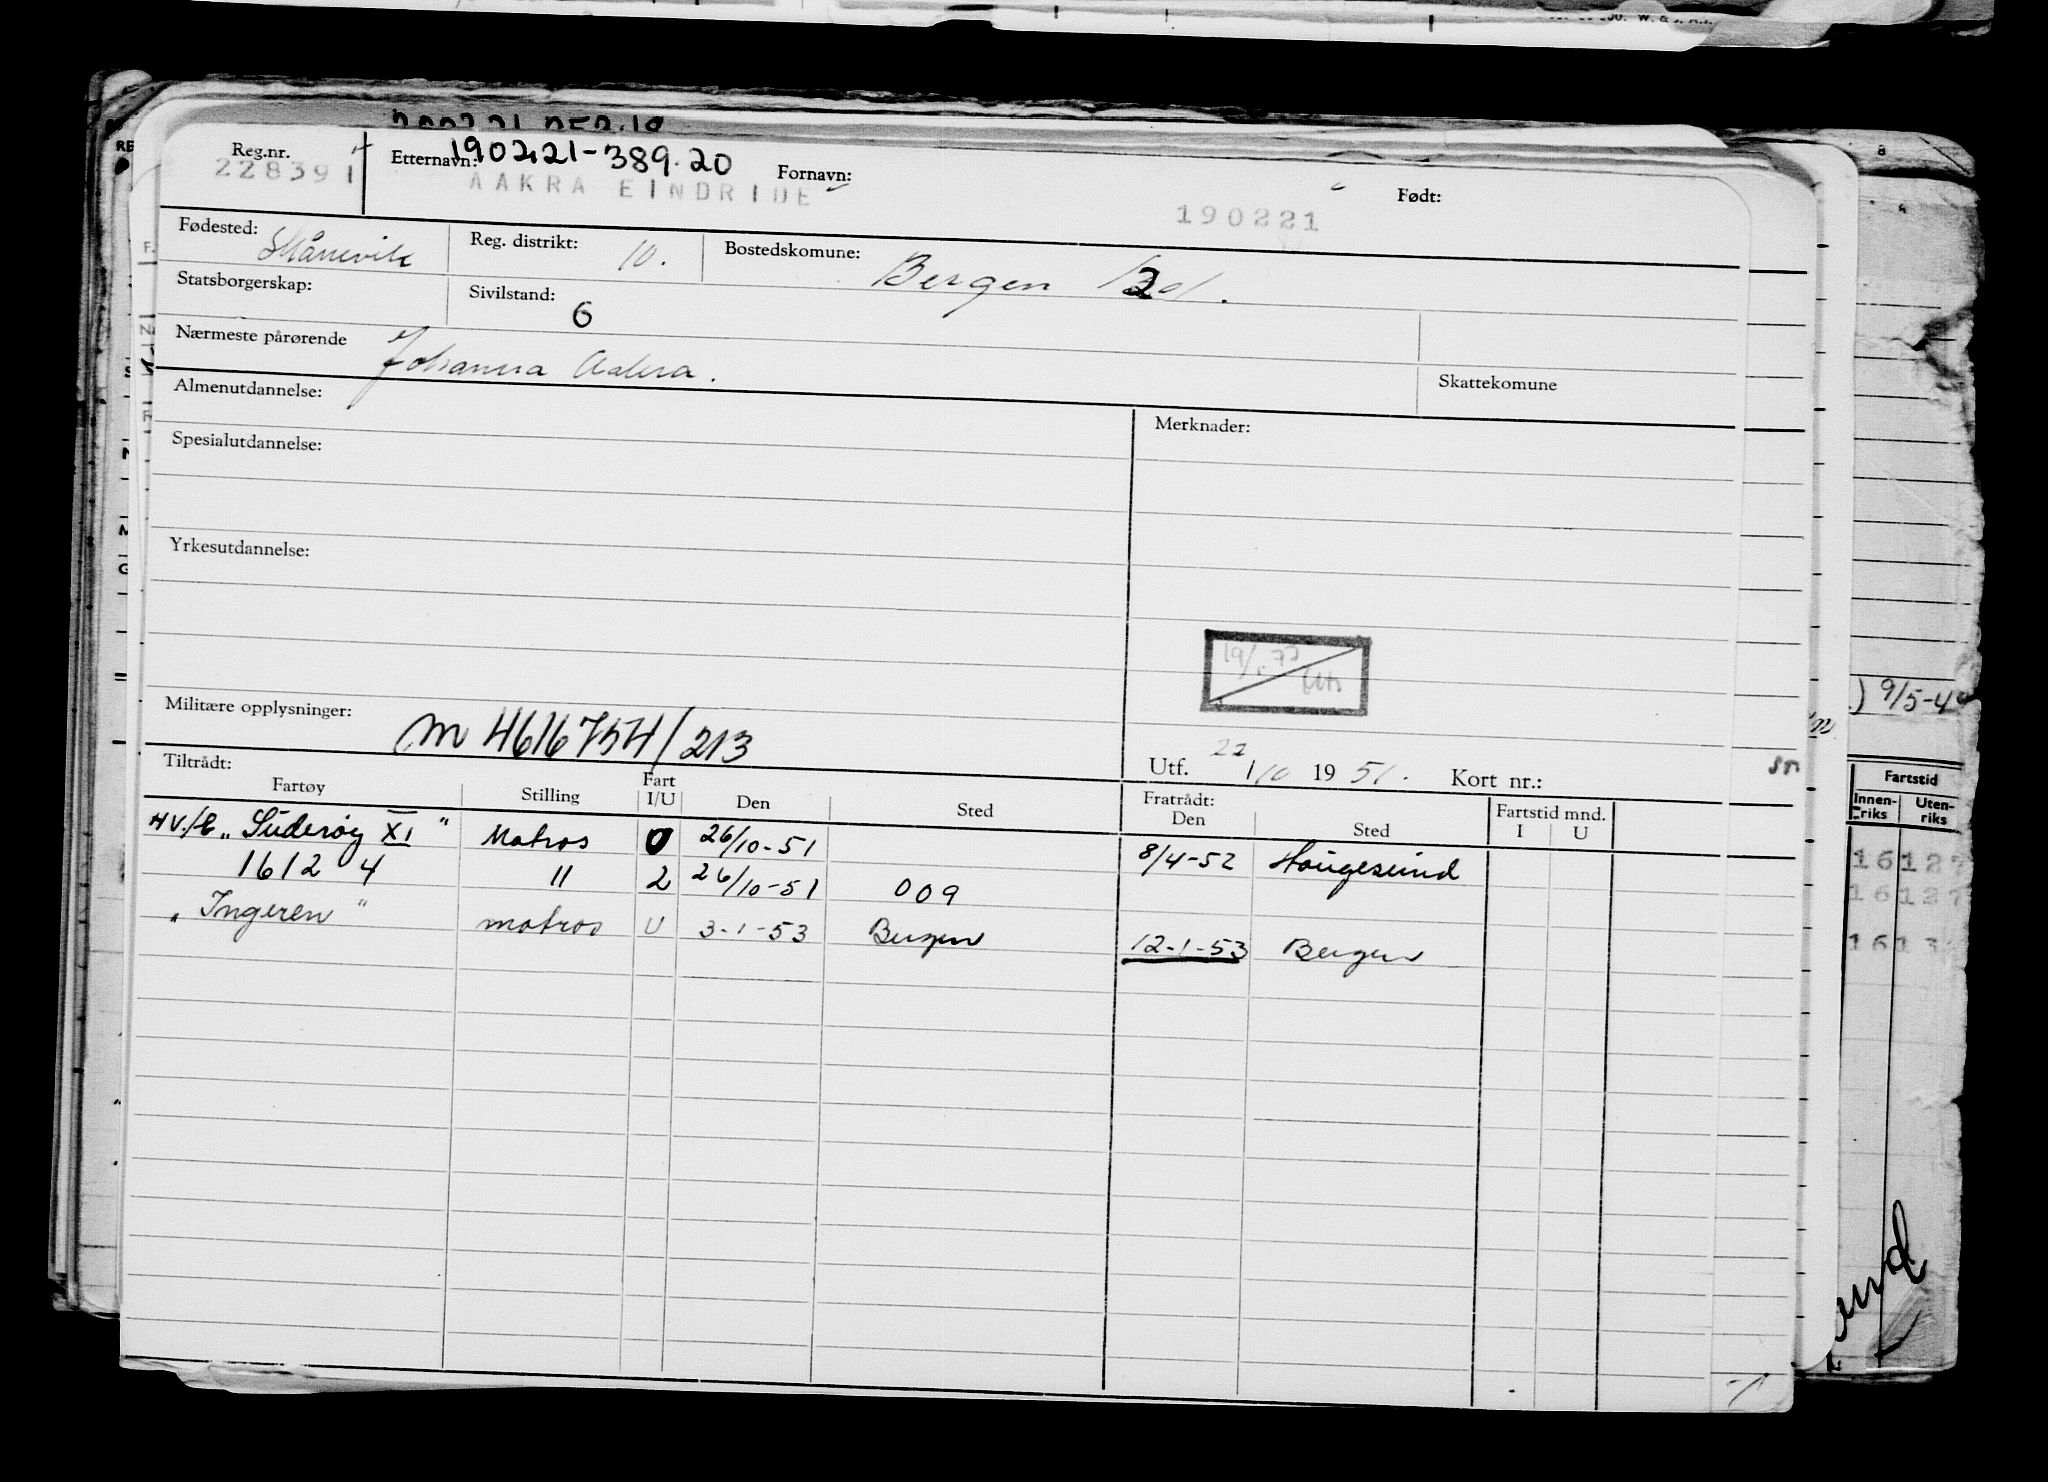 Reg.nr. Etternavn: 190221-389.20 Fornavn: Født:
228391 AAKRA EINDRIDE 190221
Fødested: Skånevik Reg. distrikt: 10. Bostedskomune: Bergen
Statsborgerskap: Sivilstand: G
Nærmeste pårørende Johanna Aakra.
Skattekomune
Almenutdannelse: Merknader:
Spesialutdannelse:
Yrkesutdannelse:
Militære opplysninger: m 4616754/213
Utf. 22/10 1951. Kort nr.:
Tiltrådt: Fratrådt: Fartstid mnd.
Fartøy Stilling Fart I/U Den Sted Den Sted I U
"Suderøy XI" Matros U 26/10-51 8/4-52 Haugesund
1612 4 " 2 26/10-51 009
"Ingeren" matros U 3-1-53 Bergen 12-1-53 Bergen
9/5-4
Fartstid
Innen-riks Uten-riks
16127
16127
1613